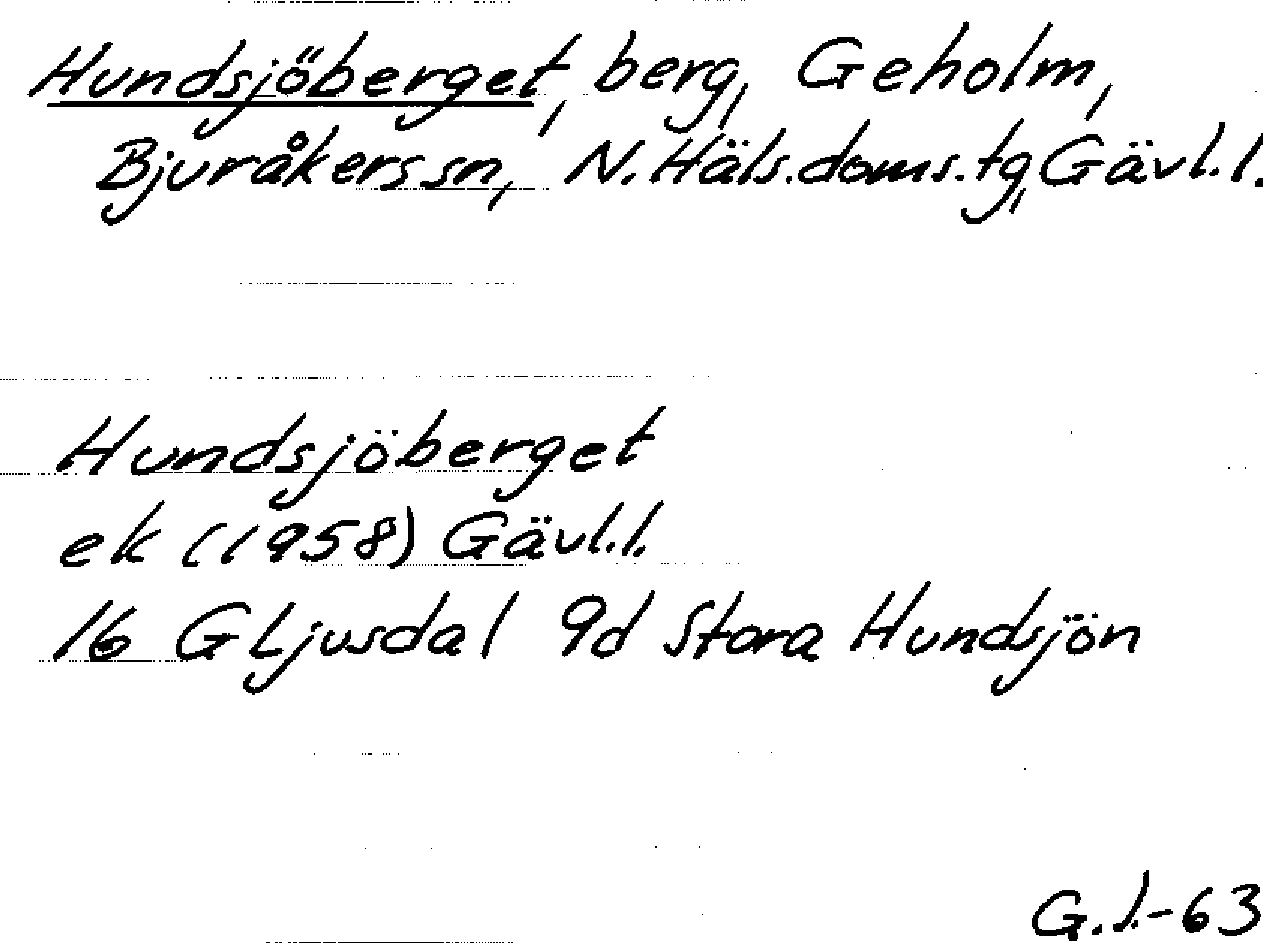 Hundsjöberget, berg, Geholm,
Bjuråkers sn, N. Häls. doms. tg, Gävl. l.
Hundsjöberget
ek (1958) Gävl. l.
16 G Ljusdal 9d Stora Hundsjön
G. J.-63